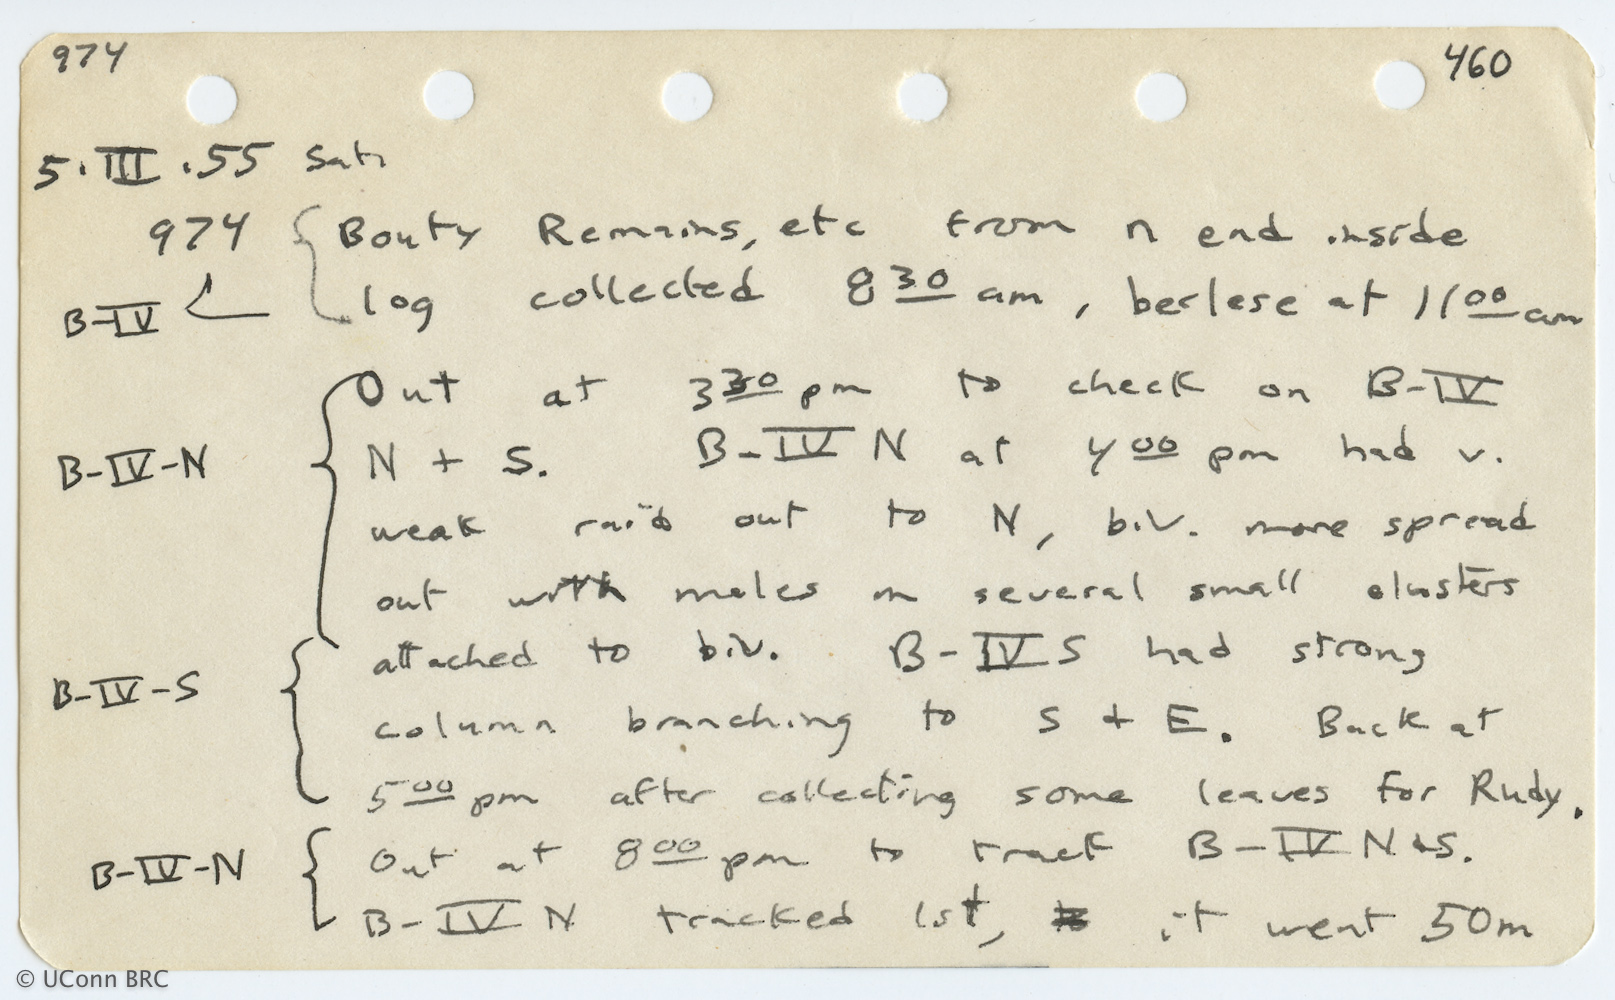 974 460
5.III.55 Sat.
974 Bouty Remains, etc from n end inside
B-IV log collected 8 30 am, berlese at 11 00 am
Out at 3 30 pm to check on B-IV
B-IV-N N + S. B-IV N at 4 00 pm had v.
weak raid out to N, biv. more spread
out with males in several small clusters
attached to biv. B-IV S had strong
B-IV-S column branching to S + E. Back at
5 00 pm after collecting some leaves for Rudy.
B-IV-N Out at 8 00 pm to track B-IV N+S.
B-IV N tracked 1st, it went 50m
© UConn BRC